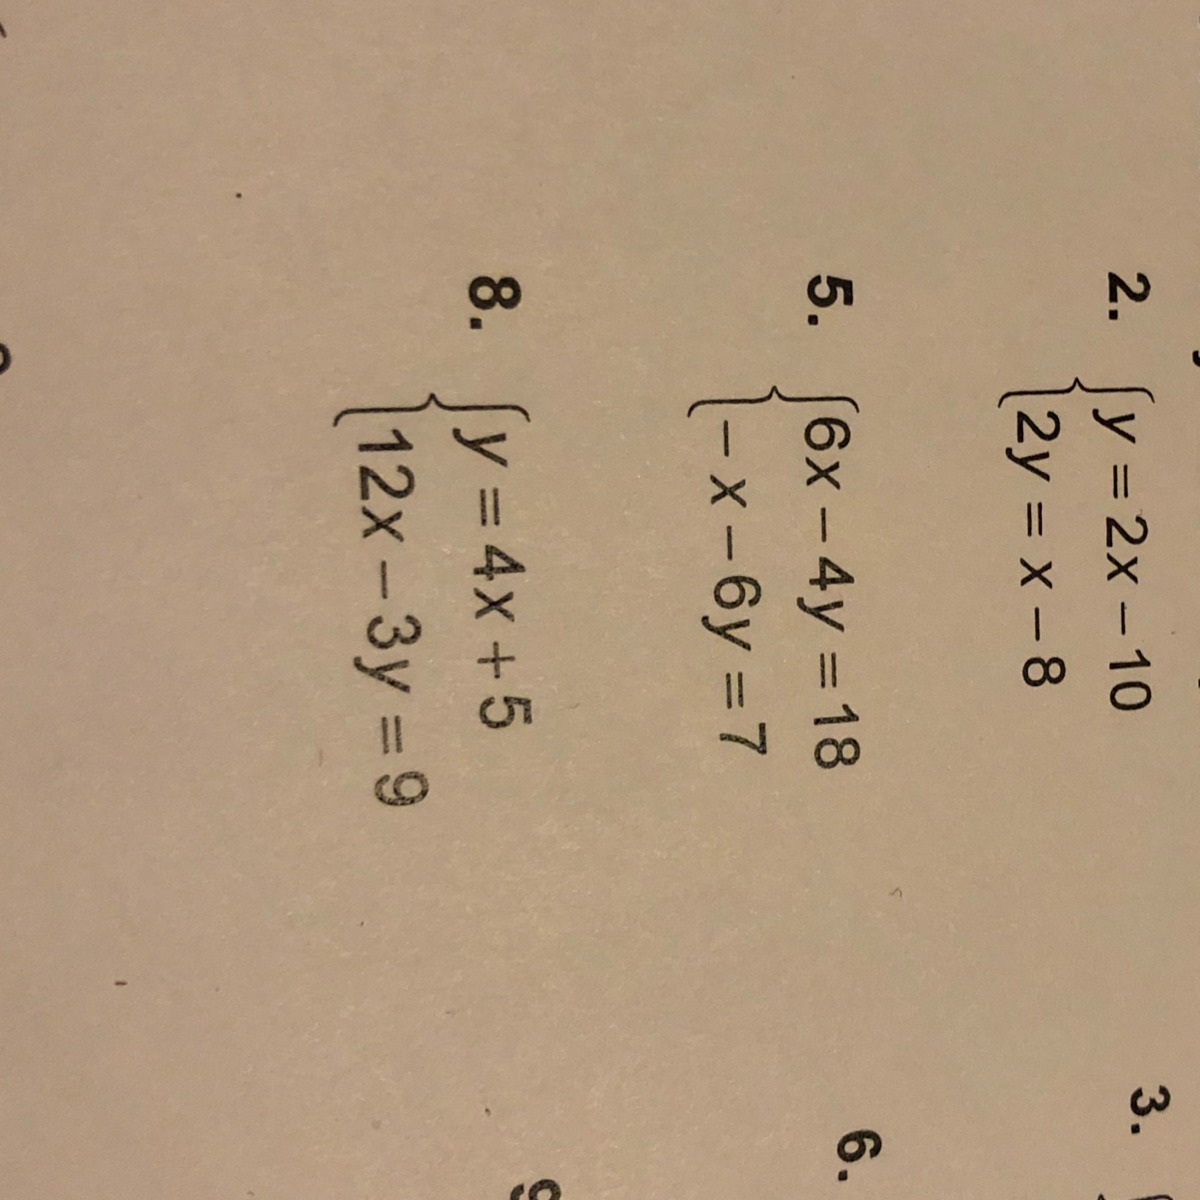 2. y = 2x – 10
2y = x – 8
3.
5. 6x – 4y = 18
– x – 6y = 7
6.
8. y = 4x + 5
12x – 3y = 9